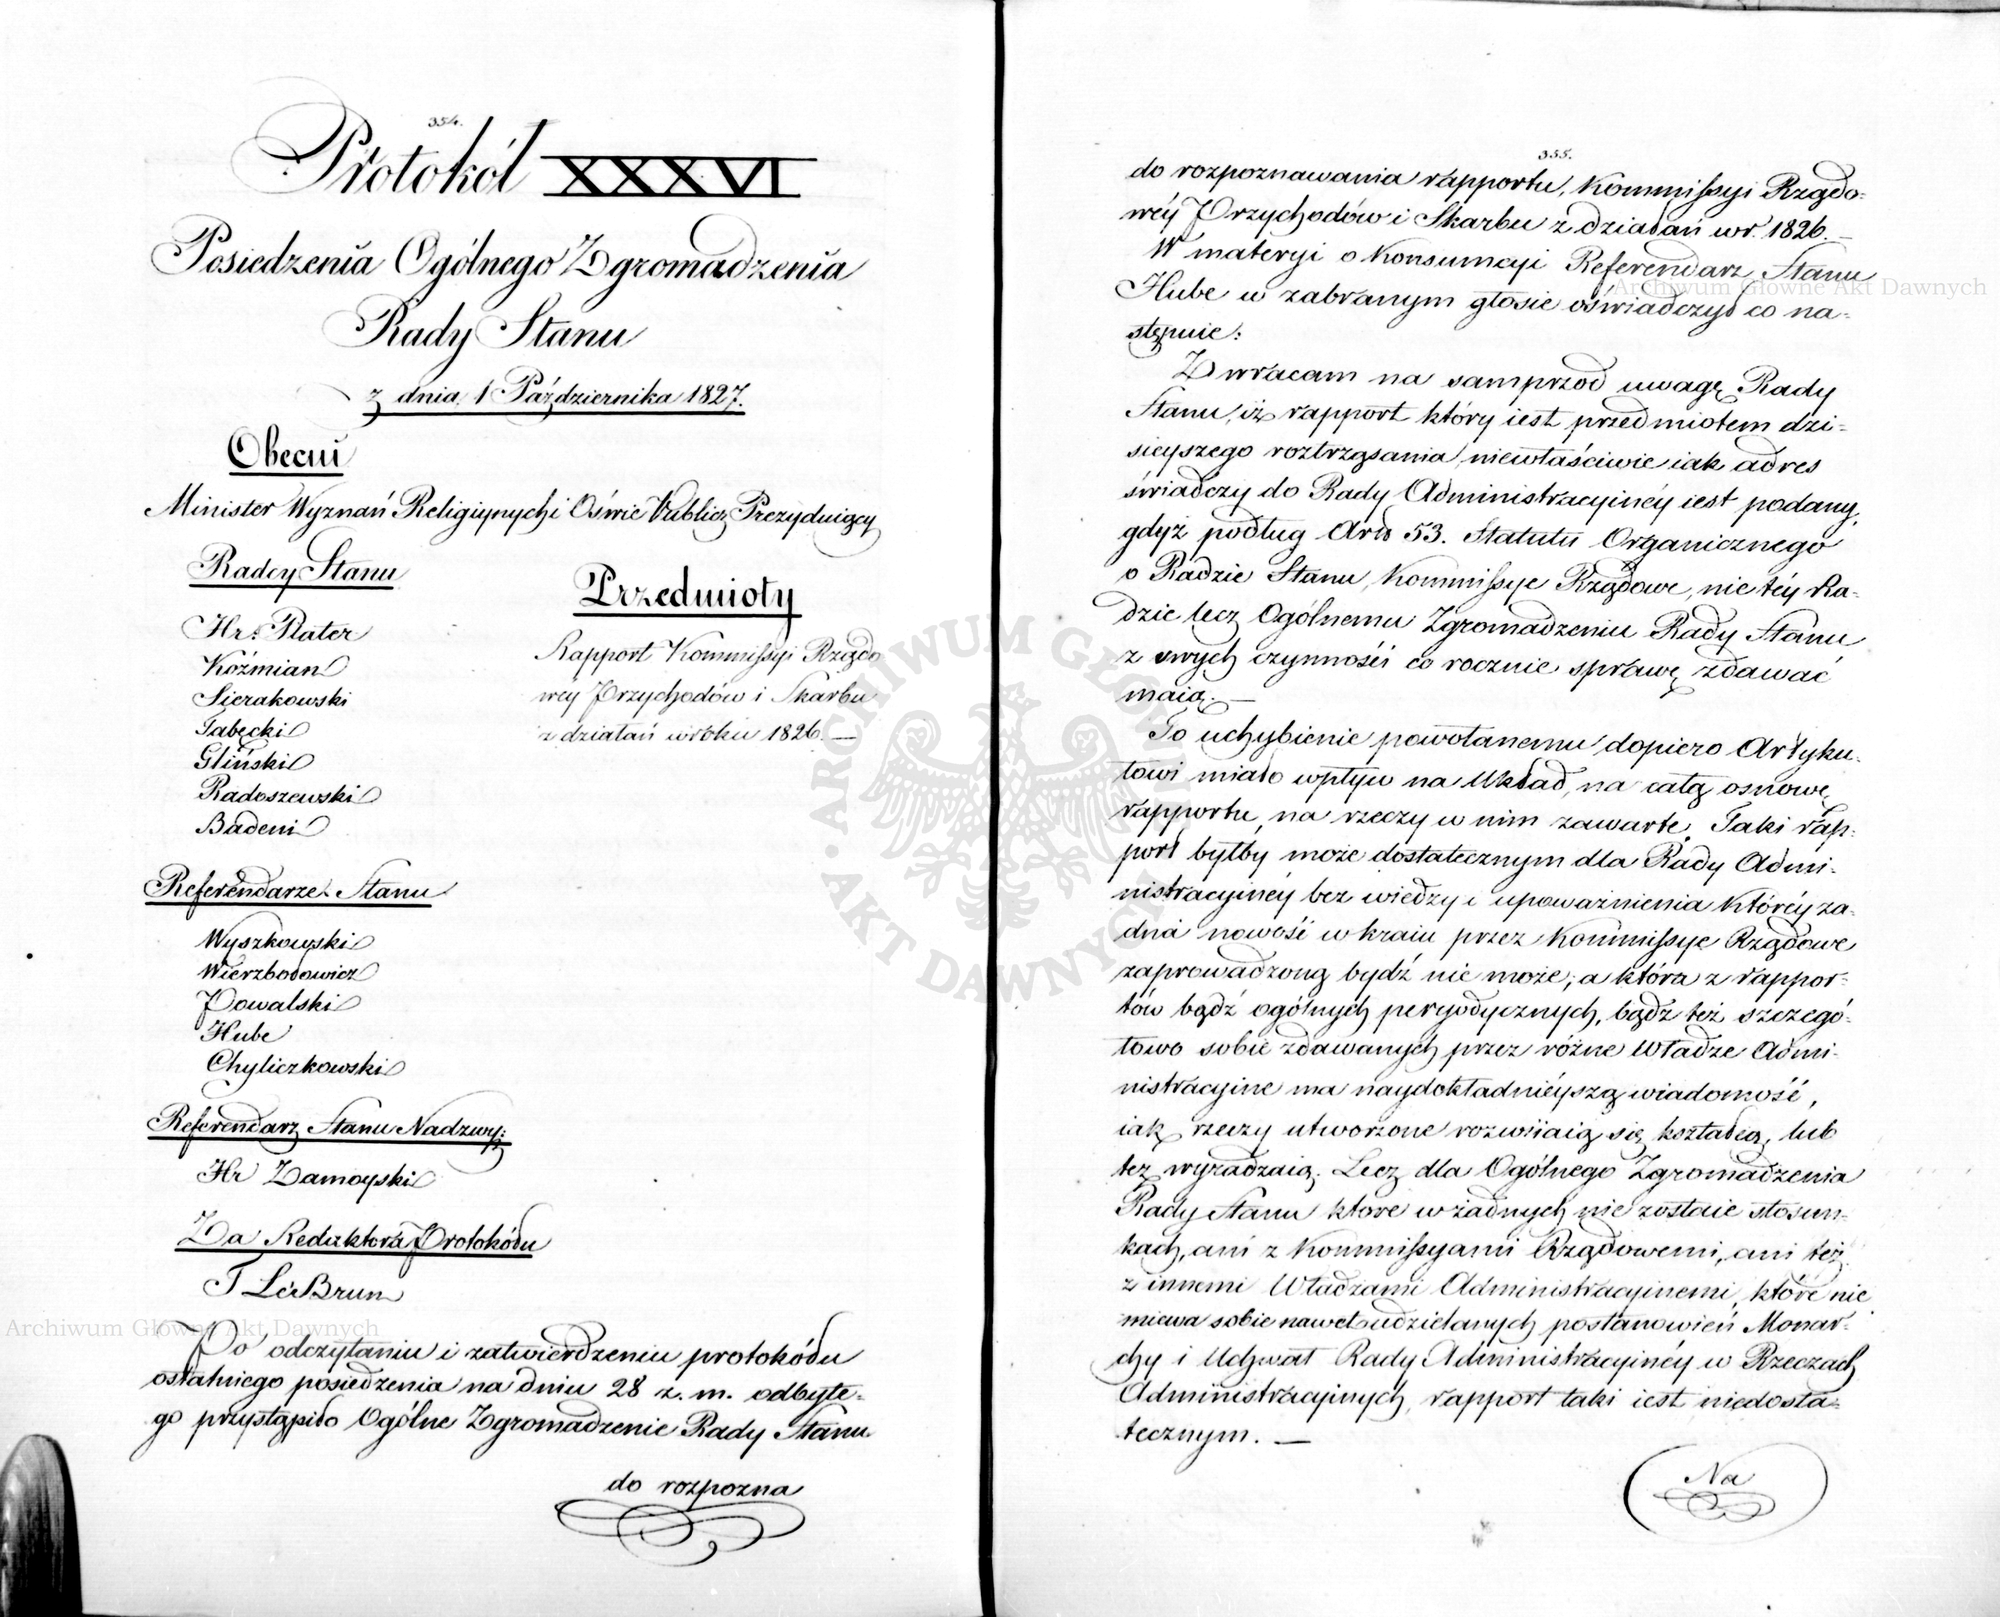 354.
Protokół XXXVI
Posiedzenia Ogólnego Zgromadzenia
Rady Stanu
z dnia 1 Października 1827.
Obecni
Minister Wyznań Religiynych i Oświe Public Prezyduiący
Radcy Stanu
Hr: Plater
Koźmian
Sierakowski
Tabęcki
Gliński
Radoszewski
Badeni
Referendarze Stanu
Wyszkowski
Wierzbołowicz
Powalski
Hube
Chyliczkowski
Referendarz Stanu Nadzwy:
Hr Zamoyski
Za Redaktora Protokółu
T LeBrun
Przedmioty
Rapport Kommissyi Rządo
wey Przychodów i Skarbu
z działań w roku 1826. —
Po odczytaniu i zatwierdzeniu protokółu
ostatniego posiedzenia na dniu 28 z. m. odbyte-
go przystąpiło Ogólne Zgromadzenie Rady Stanu
do rozpozna
355.
do rozpoznawania rapportu, Kommissyi Rządo-
wéy Przychodów i Skarbu z działań w r. 1826. —
W materyi o Konsumcyi Referendarz Stanu
Hube w zabranym głosie oświadczył co na-
stępuie:
Zwracam na samprzód uwagę Rady
Stanu, iż rapport który iest przedmiotem dzi-
sieyszego roztrząsania niewłaściwie iak adres
świadczy do Rady Administracyinéy iest podany,
gdyż podług Art 53. Statutu Organicznego
o Radzie Stanu, Kommissye Rządowe, nie téy Ra-
dzie lecz Ogólnemu Zgromadzeniu Rady Stanu
z swych czynności co rocznie sprawę zdawać
maią. —
To uchybienie powołanemu dopiero Artyku-
łowi miało wpływ na Układ, na całą osnowę
rapportu, na rzeczy w nim zawarte. Taki rap-
port byłby może dostatecznym dla Rady Admi-
nistracyinéy bez wiedzy i upoważnienia któréy ża-
dna nowość w kraiu przez Kommissye Rządowe
zaprowadzoną bydź nie może, a która z rappor-
tów bądź ogólnych peryodycznych, bądź też szczegó-
łowo sobie zdawanych przez różne Władze Admi-
nistracyine ma naydokładniéyszą wiadomość,
iak rzeczy utworzone rozwiiaią się, kształcą, lub
też wyradzaią. Lecz dla Ogólnego Zgromadzenia
Rady Stanu które w żadnych nie zostaie stosun-
kach, ani z Kommissyami Rządowemi, ani też
z innemi Władzami Administracyinemi, które nie
miewa sobie nawet udzielanych postanowień Monar-
chy i Uchwał Rady Administracyinéy w Rzeczach
Administracyinych, rapport taki iest niedosta-
tecznym. —
Na
Archiwum Główne Akt Dawnych
Archiwum Główne Akt Dawnych
· ARCHIWUM GŁÓWNE · AKT DAWNYCH